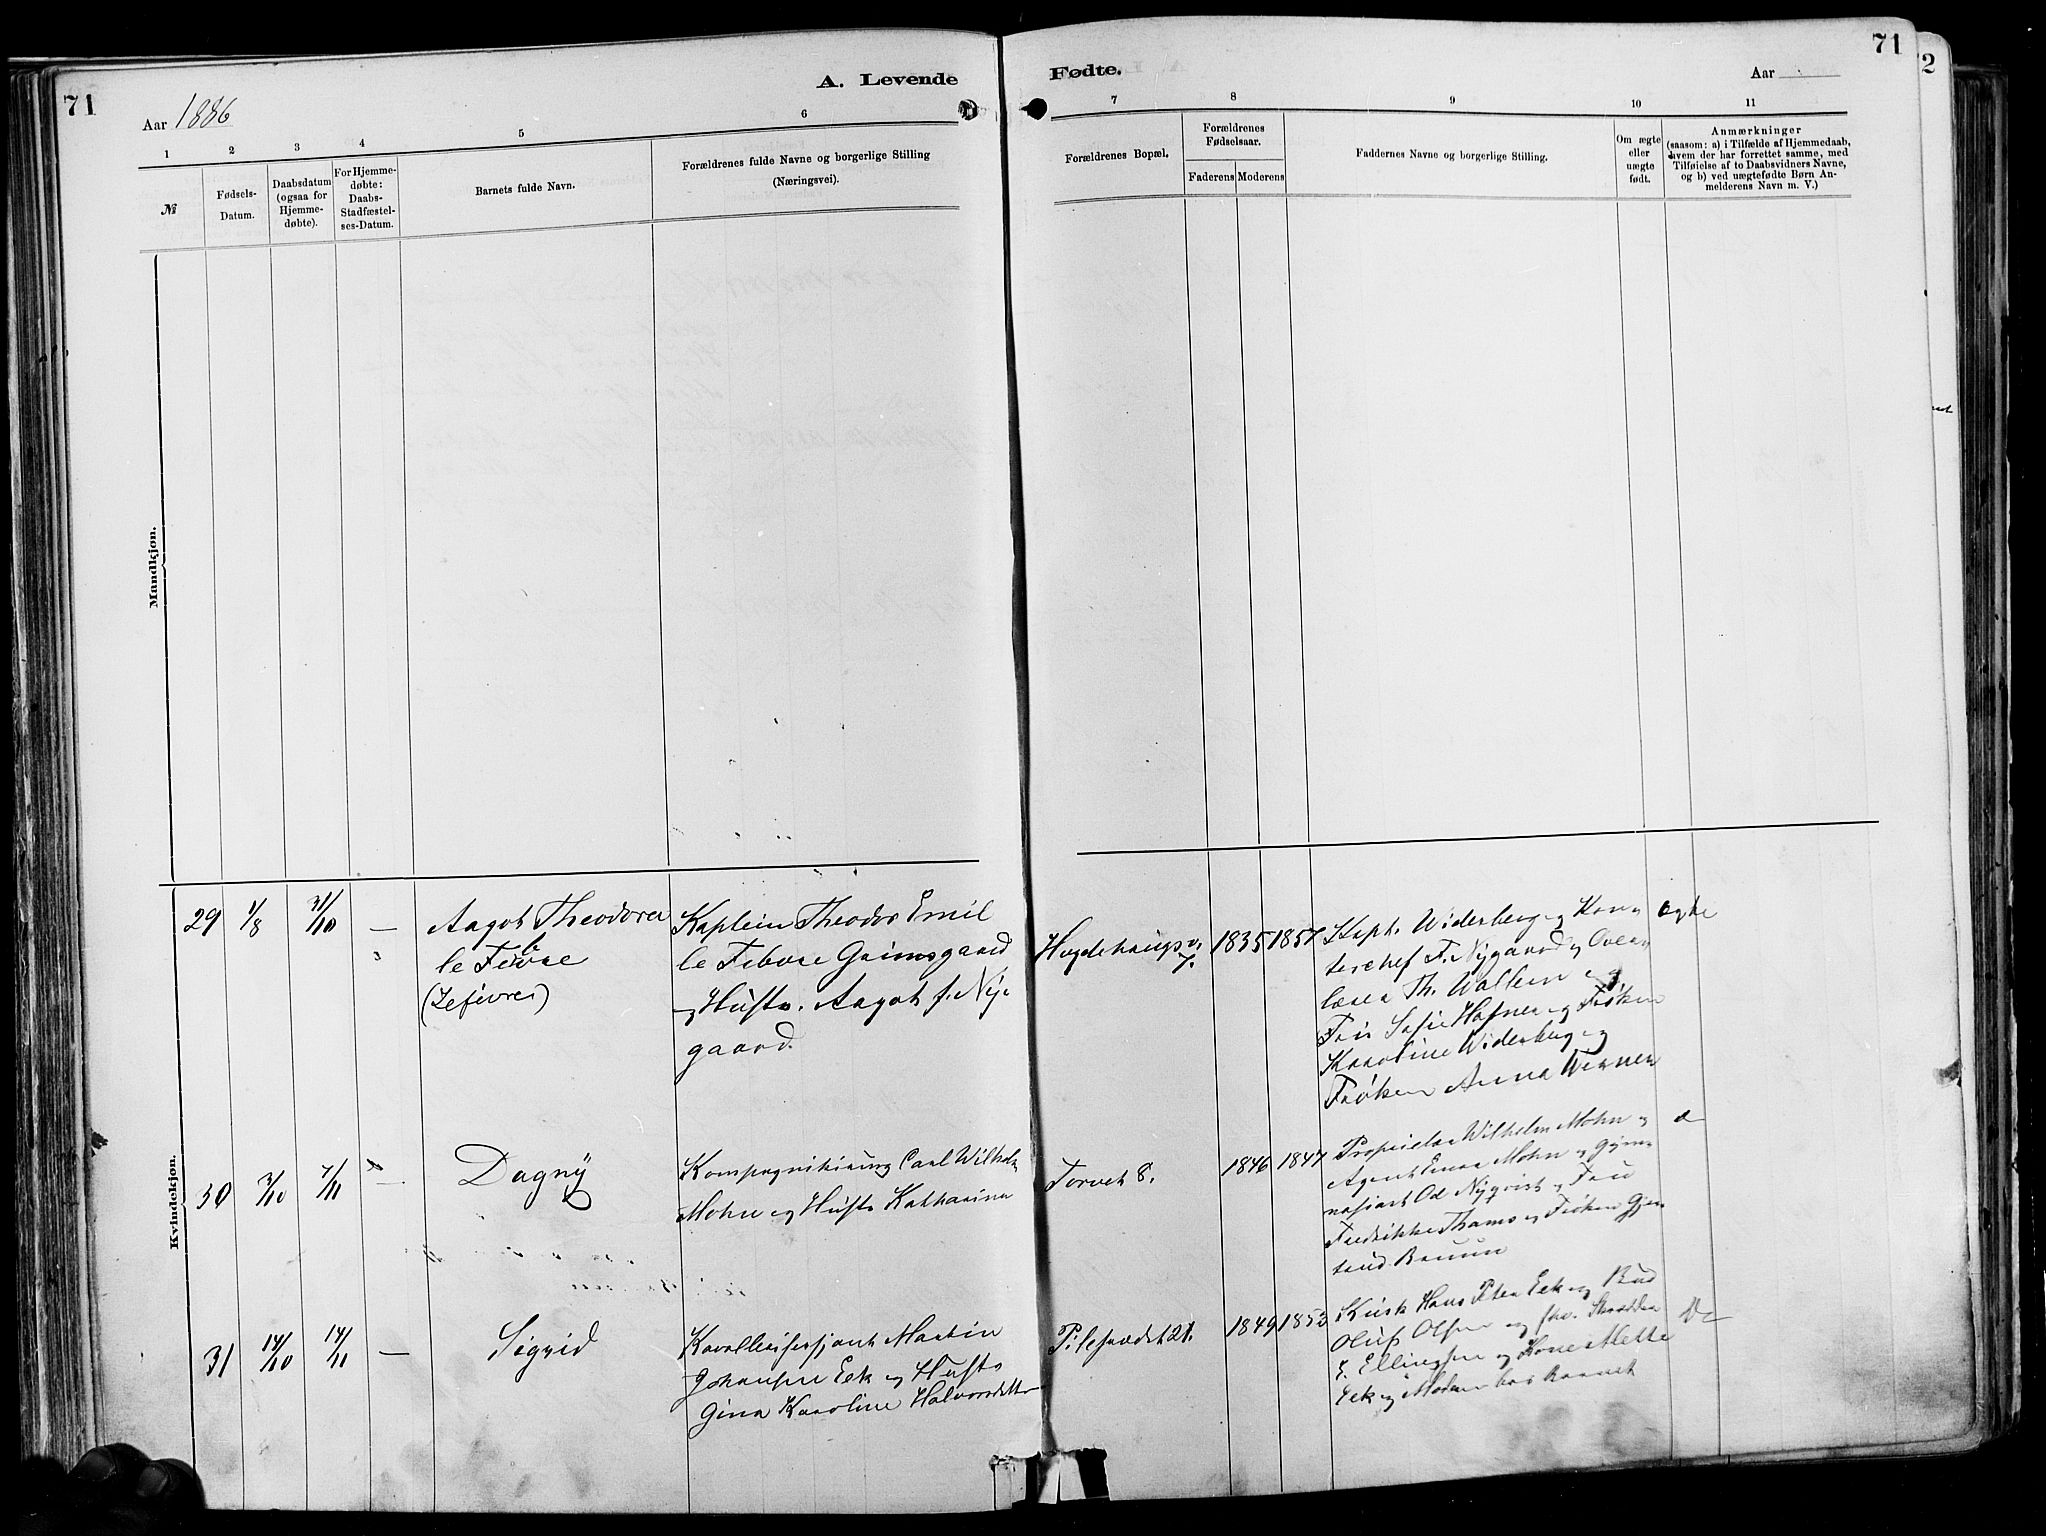 71
Aar 1886
A. Levende
1
2
3
4
5
6
№
Fødsels-
Datum.
Daabsdatum
(ogsaa for
Hjemme-
døbte).
For Hjemme-
døbte:
Daabs-
Stadfæstel-
ses-Datum.
Barnets fulde Navn.
Forældrenes fulde Navne og borgerlige Stilling
(Næringsvei).
Mandkjøn.
Kvindekjøn.
29 1/8 31/10 — Aagot Theodora
le Febvre
(Lefevre)
Kaptein Theodor Emil
le Febvre Grimsgaard
og Hustr. Aagot f. Ny-
gaard.
30 3/10 7/11 — Dagny
Carl Wilhelm
Mohn og Hustr Katharina
31 14/10 14/11 — Sigrid
Kavallerisersjant Martin
Johansen Eek og Hustr
Gina Karoline Halvorsdatter
Fødte.
71
Aar
2
7
8
9
10
11
Forældrenes Bopæl.
Forældrenes
Fødselsaar.
Faderens
Moderens
Faddernes Navne og borgerlige Stilling.
Om ægte
eller
uægte
født.
Anmærkninger
(saasom: a) i Tilfælde af Hjemmedaab,
hvem der har forrettet samme, med
Tilføielse af to Daabsvidners Navne,
og b) ved uægtefødte Børn An-
melderens Navn m. V.)
1835 1857 Kapt. Widerberg og Kon- ægte
F. Nygaard og Over-
lærer Th. Wallem og
Fru Sofie Hafner og Frøken
Karoline Widerberg og
Frøken Anna Werner
Torvet 8. 1846 1847 Proprietær Wilhelm Mohn og
Agent Einar Mohn og Gym-
nasiast Od Nyqvist og Fru
Fredrikke Thams og Frøken Gjer-
trud Bruun
Pilestrædet 21. 1849 1853 Kusk Hans Peter Eek og Bud Do
Oluf Olsen og fhv. Skrædder
E. Ellingsen og Kone Mette
Eek og Moderen bar Barnet